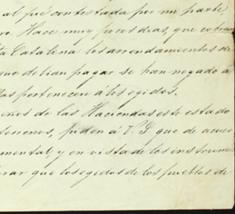 al fué contestada por mi parte
vo. Hace muy pocos dias, que cobran
ta Catalina los arrendamientos de
que debian pagar se han negado á
las pertenecen á los egidos.
eños de las Haciendas este estado
tenemos, piden á V. S. que de acuer
mental y en vista de los instrumen
rar que los egidos de los pueblos de